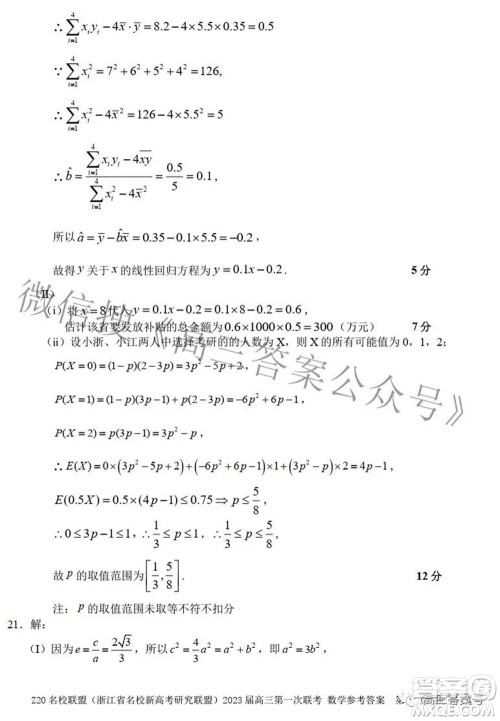 ∴ ∑_{i=1}^{4} x_i y_i − 4x̄·ȳ = 8.2 − 4×5.5×0.35 = 0.5
∵ ∑_{i=1}^{4} x_i² = 7² + 6² + 5² + 4² = 126,
∴ ∑_{i=1}^{4} x_i² − 4x̄² = 126 − 4×5.5² = 5
∴ b̂ = (∑_{i=1}^{4} x_i y_i − 4x̄ȳ) / (∑_{i=1}^{4} x_i² − 4x̄²) = 0.5/5 = 0.1,
所以 â = ȳ − b̂x̄ = 0.35 − 0.1×5.5 = −0.2,
故得 y 关于 x 的线性回归方程为 y = 0.1x − 0.2. 5 分
(Ⅱ)
(i) 将 x = 8 代入 y = 0.1x − 0.2 = 0.1×8 − 0.2 = 0.6
估计该省要发放补贴的总金额为 0.6×1000×0.5 = 300 (万元) 7 分
(ii) 设小浙、小江两人中选择考研的的人数为 X,则 X 的所有可能值为 0,1,2;
P(X = 0) = (1−p)(2−3p) = 3p² − 5p + 2,
P(X = 1) = (1−p)(3p−1) + p(2−3p) = −6p² + 6p − 1,
P(X = 2) = p(3p−1) = 3p² − p,
∴ E(X) = 0×(3p² − 5p + 2) + (−6p² + 6p − 1)×1 + (3p² − p)×2 = 4p − 1,
E(0.5X) = 0.5×(4p−1) ≤ 0.75 ⇒ p ≤ 5/8,
∴ 0 ≤ 3p − 1 ≤ 1, ∴ 1/3 ≤ p ≤ 5/8,
故 p 的取值范围为 [1/3, 5/8]. 12 分
注:p 的取值范围未取等不符不扣分
21. 解:
(I) 因为 e = c/a = 2√3/3,所以 c² = 4/3 a² = a² + b²,即 a² = 3b²,
Z20 名校联盟(浙江省名校新高考研究联盟)2023 届高三第一次联考 数学参考答案 第
微信搜《高三答案公众号》